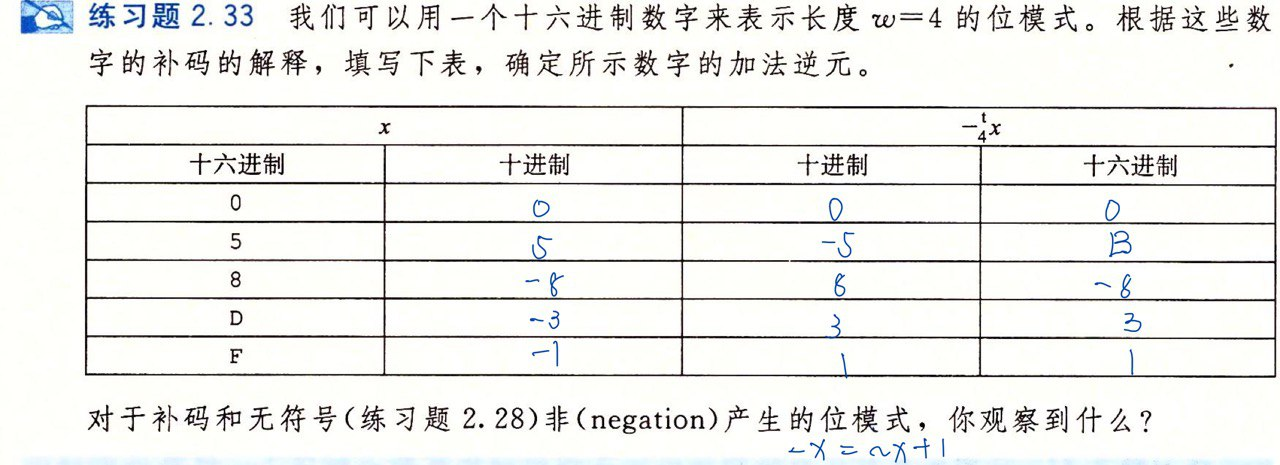 练习题 2.33 我们可以用一个十六进制数字来表示长度 w=4 的位模式。根据这些数
字的补码的解释，填写下表，确定所示数字的加法逆元。
x -ᵗ₄x
十六进制 十进制 十进制 十六进制
0 0 0 0
5 5 -5 B
8 -8 8 -8
D -3 3 3
F -1 1 1
对于补码和无符号(练习题 2.28)非(negation)产生的位模式，你观察到什么？
-x = ~x+1